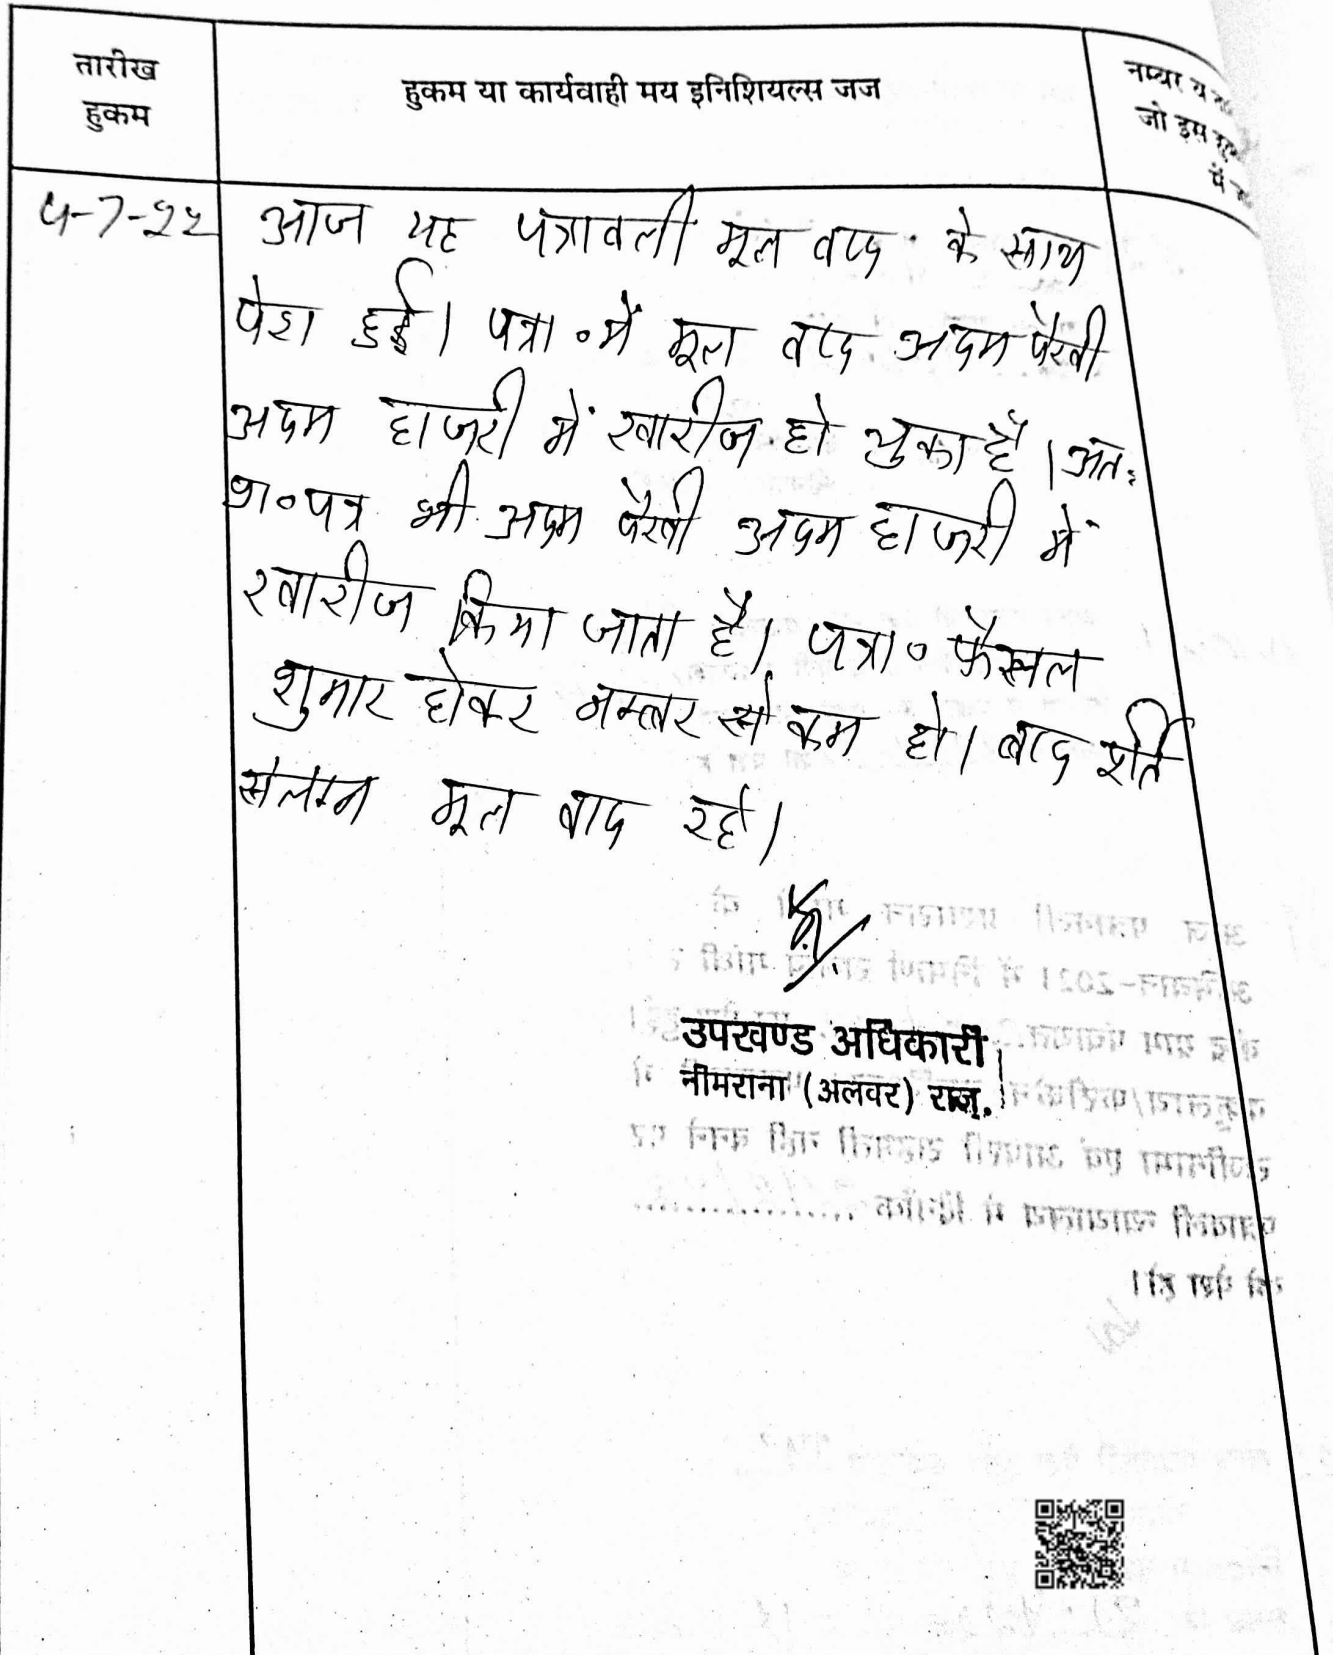 तारीख
हुकम
हुकम या कार्यवाही मय इनिशियल्स जज
नम्बर व
जो इस
में
५-7-२२
आज यह पत्रावली मूल वाद के साथ
पेश हुई। पत्रा॰ में मूल वाद अदम पैरवी
अदम हाजरी में खारीज हो चुका है। अतः
प्रा॰ पत्र भी अदम पैरवी अदम हाजरी में
खारीज किया जाता है। पत्रा॰ फैसल
शुमार होकर नम्बर से कम हो। बाद शर्त
संलग्न मूल वाद रहे।
उपखण्ड अधिकारी
नीमराना (अलवर) राज.